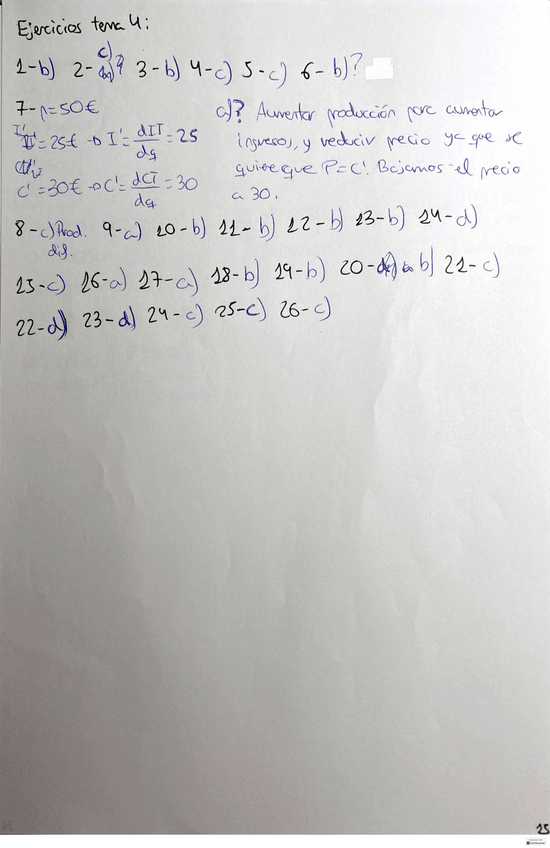 Ejercicios tema 4:
1-b) 2- c)? 3-b) 4-c) 5-c) 6-b)?
7- p=50€
I'=25€ → I'=dIT/dq=25
C'=30€ → C'=dCT/dq=30
a)? Aumentar producción para aumentar
ingresos, y reducir precio ya que se
quiere que P=C'. Bajamos el precio
a 30.
8-c) Prod. dif. 9-a) 10-b) 11-b) 12-b) 13-b) 14-d)
15-c) 16-a) 17-a) 18-b) 19-b) 20- b) 21-c)
22-d) 23-d) 24-c) 25-c) 26-c)
25